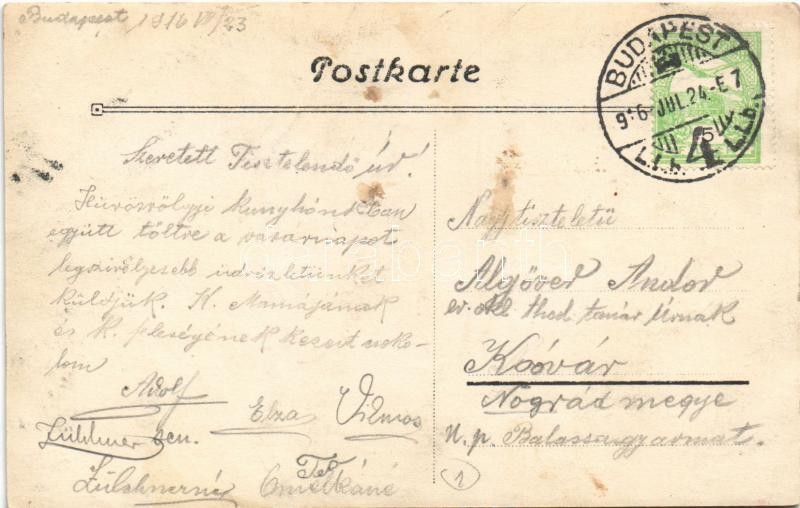 Budapest 1916 VII/23
Postkarte
BUDAPEST
916 JUL. 24.-E 7
4
Szeretett Tisztelendő úr!
Hűvösvölgyi kunyhónkban
együtt töltve a vasárnapot
legszivélyesebb üdvözletünket
küldjük. K. Mamájának
és k. feleségének kezeit csóko-
lom
Adolf
Elza
Vilmos
sen.
Nagytiszteletű
Algöver Andor
ev. okl. theol tanár Úrnak
Kóvár
Nográd megye
U. p. Balassagyarmat.
1